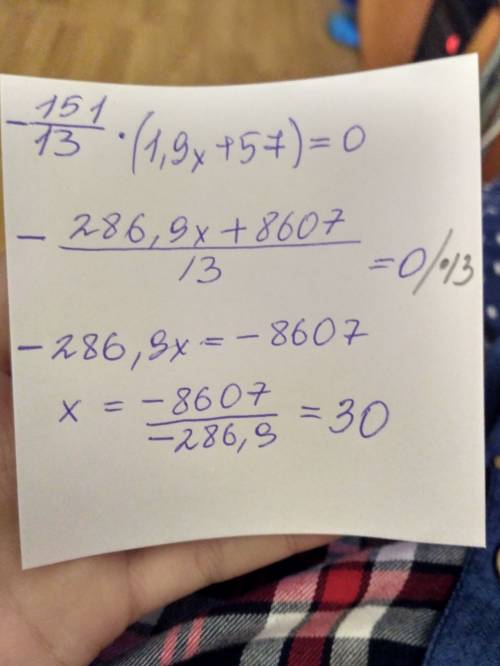 -151/13 · (1,9x+57) = 0
- 286,9x + 8607 / 13 = 0 /·13
-286,9x = -8607
x = -8607 / -286,9 = 30